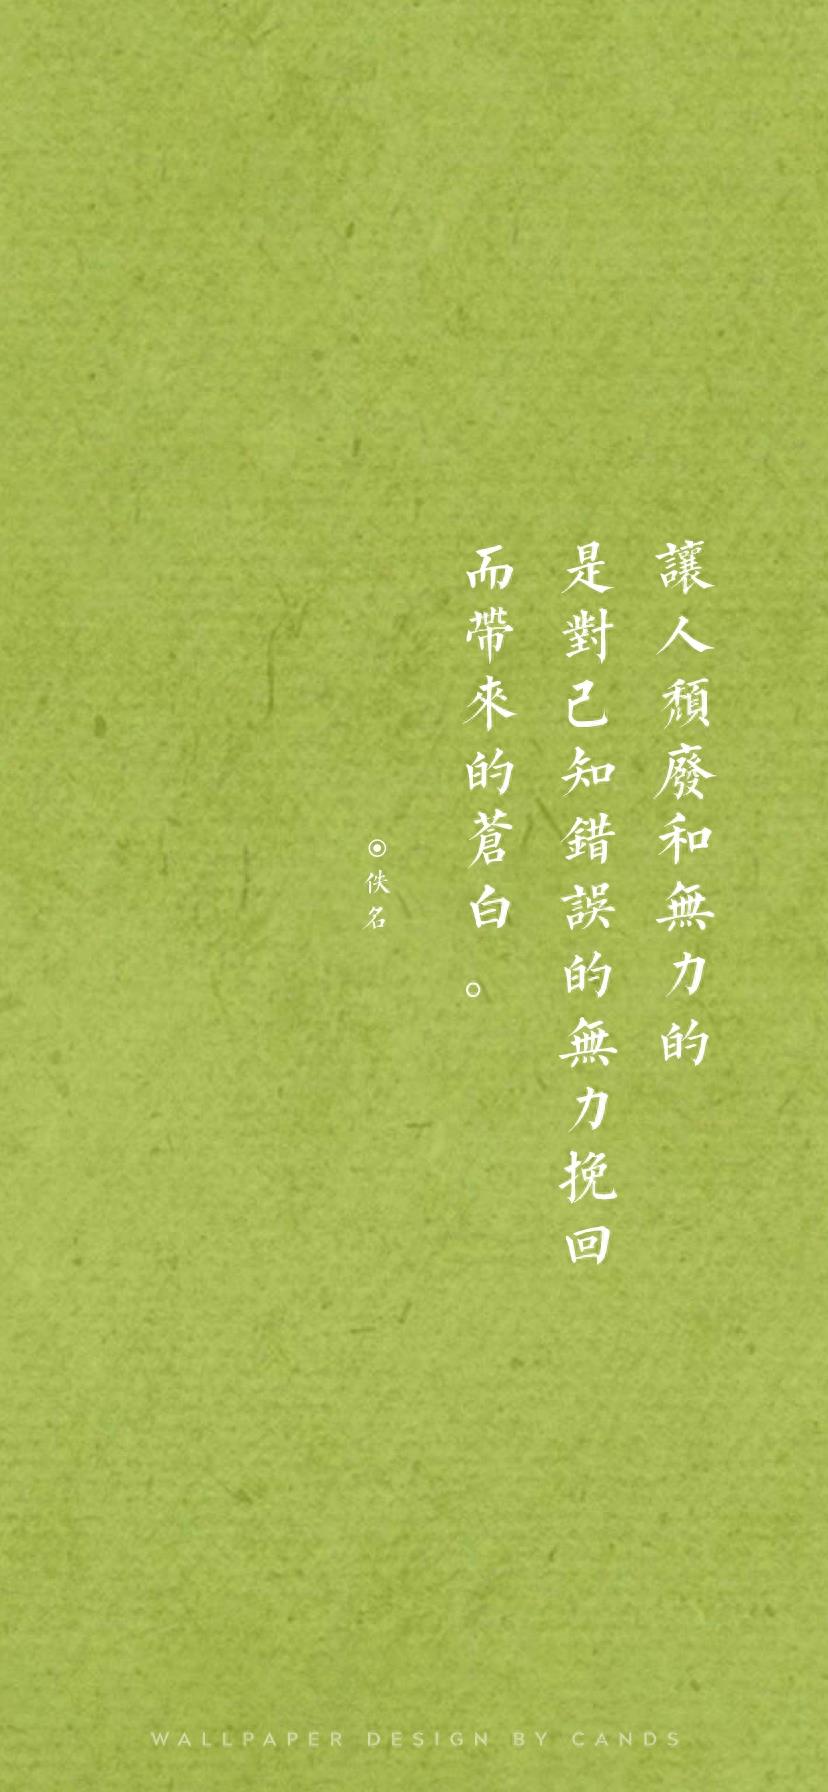 讓人頹廢和無力的
是對己知錯誤的無力挽回
而帶來的蒼白。
◉佚名
WALLPAPER DESIGN BY CANDS